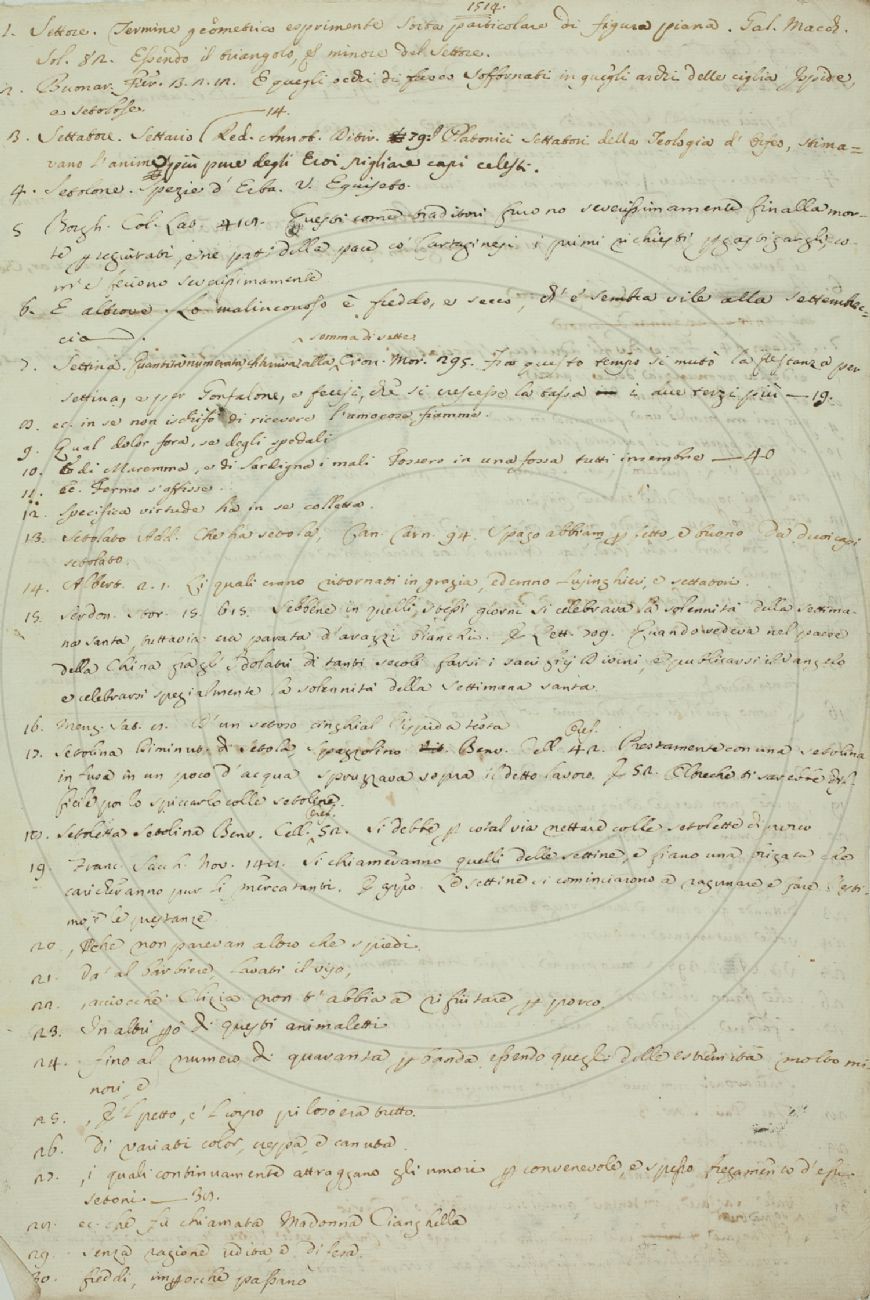 1514.
1. Settore. Termine geometrico esprimente sorta particolare di figura piana. Gal. Macch.
Sol. 52. Essendo il triangolo, è minore del Settore.
2. Buonar. Fier. 3. 2. 12. E quegli occhi di fuoco Soffornati in quegli archi delle ciglia Ispide,
e setolose
14.
3. Settatore. Settario Red. Annot. Ditir. 79. Platonici Settatori della Teologia d' Orfeo, stima=
vano l'anime più pure degli Eroi pigliare corpi celesti.
4. Setolone. Spezie d' Erba. V. Equiseto.
5 Borgh. Col. Lat. 418. Questi come traditori furono severissimamente finalla mor-
te perseguitati, e ne patti della pace co' Cartaginesi i primi richiesti per gastigargli, co-
m' e' feciono severissimamente
6. E altrove. Lo malinconoso è freddo, e secco, ch' è sembra vile alla settembrec-
cia
somma di sette
7. Settina. Quantità numerata ch'arriva alla Cron. Morell. 295. In questo tempo si mutò la prestanza per
settina, e per Gonfalone, e fecesi, che si crescesse la tassa i due terzi più — 19.
8. ec. in se non ischifo di ricevere l'amorose fiamme.
9. Qual dolor fora, se degli spedali
10. E di Maremma, e di Sardigna i mali Fossero in una fossa tutti insembre — 40
11. ec. Fermo s'affisse
12. specifica virtude ha in se colletta.
13. Setolato Add. Che ha setola, Can. Carn. 94. Spago abbiam per sette, e buono Da duoi capi
setolato.
14. Albert. 2. 1. Li quali erano ritornati in grazia, ed erano lusinghieri, e settatori.
15. Serdon. Stor. 15. 615. Sebbene in quelli stessi giorni si celebrava la solennità della settima-
na santa, tuttavia era parata d'arazzi bianchi. E Lett. 709. Quando vedeva nel paese
della China fragli Idolatri di tanti secoli farsi i sacrifizj Divini, e publicarsi il vangelo
e celebrarsi spezialmente la solennità della Settimana santa.
16. Menz. Sat. D' un setoso cinghial l'ispida testa
17. Setolina Diminut. di Setola, Spazzolino Benv. Cell. Oref. 42. Prestamente con una setolina
infusa in un poco d' acqua spruzzava sopra il detto lavoro. E 52. Oltreche ti sarebbe dif-
ficile poi lo spiccarlo colle setoline.
18. Setoletta Setolina Benv. Cell. Oref. 52. Si debbe per cotal via nettare colle setolette di porco
19. Franc. Sacch. Nov. 147. Si chiameranno quelli delle settine, e fiano una brigata che
caricheranno pur li mercatanti. E appo. Le settine si cominciarono a ragunare e fare l'esti-
mo, e le prestanze
20. , che non parevan altro che spiedi.
21. Da' al barbiere, lavati il viso,
22. , acciocchè Clizia non t' abbia a rifiutare per porco.
23. In altri però di questi animaletti
24. fino al numero di quaranta per banda, essendo quegli delle estremità molto mi-
nori e
25. , E 'l petto, e 'l corpo piloso era tutto.
26. Di variati color, creppa, e canuta
27. , i quali continuamente attraggano gli umori per convenevole, e spesso fregamento d' essi
setoni. —
28. ec. che fu chiamata Madonna Cianghella
29. senza ragione udita e difesa
30. freddi, imperocche passano